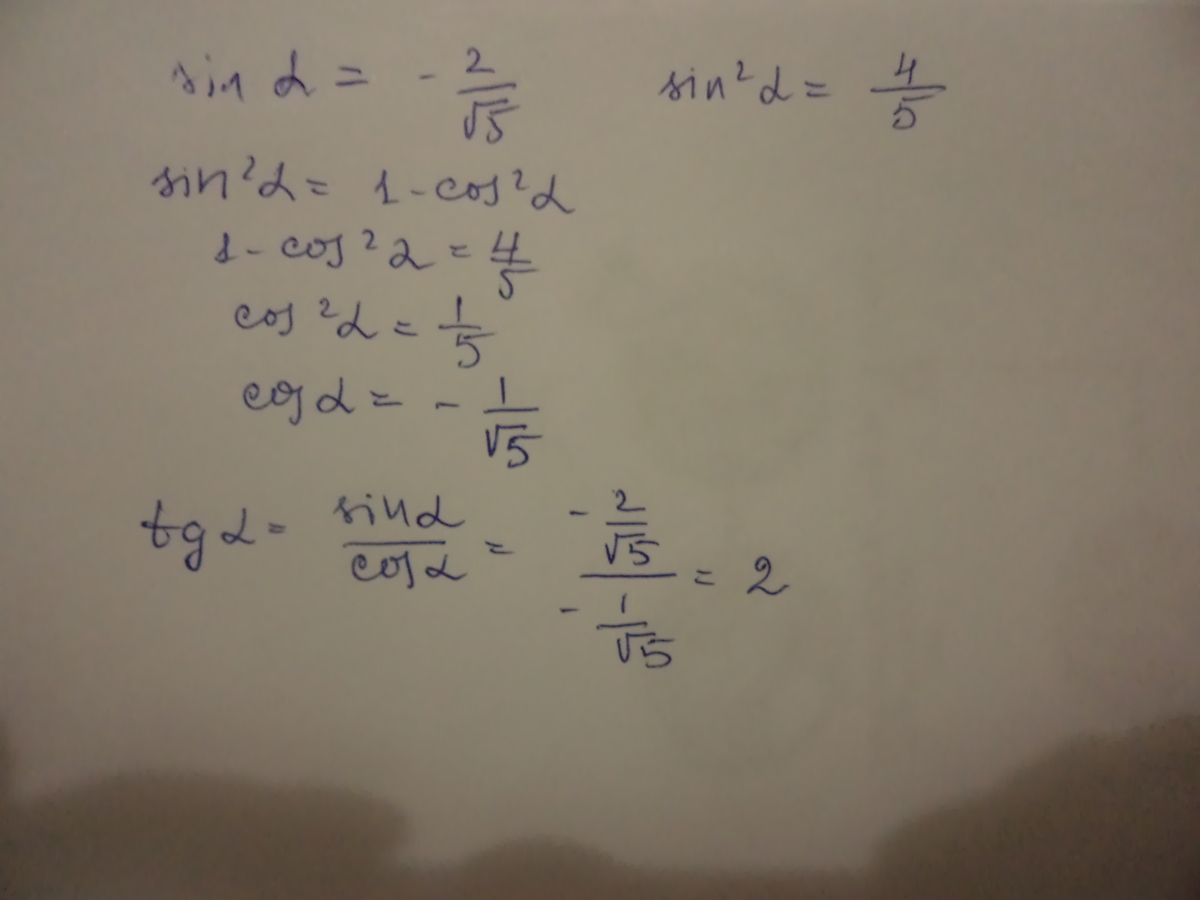 sin α = - 2/√5    sin²α = 4/5
sin²α = 1 - cos²α
1 - cos²α = 4/5
cos²α = 1/5
cos α = - 1/√5
tg α = sin α/cos α = (- 2/√5)/(- 1/√5) = 2